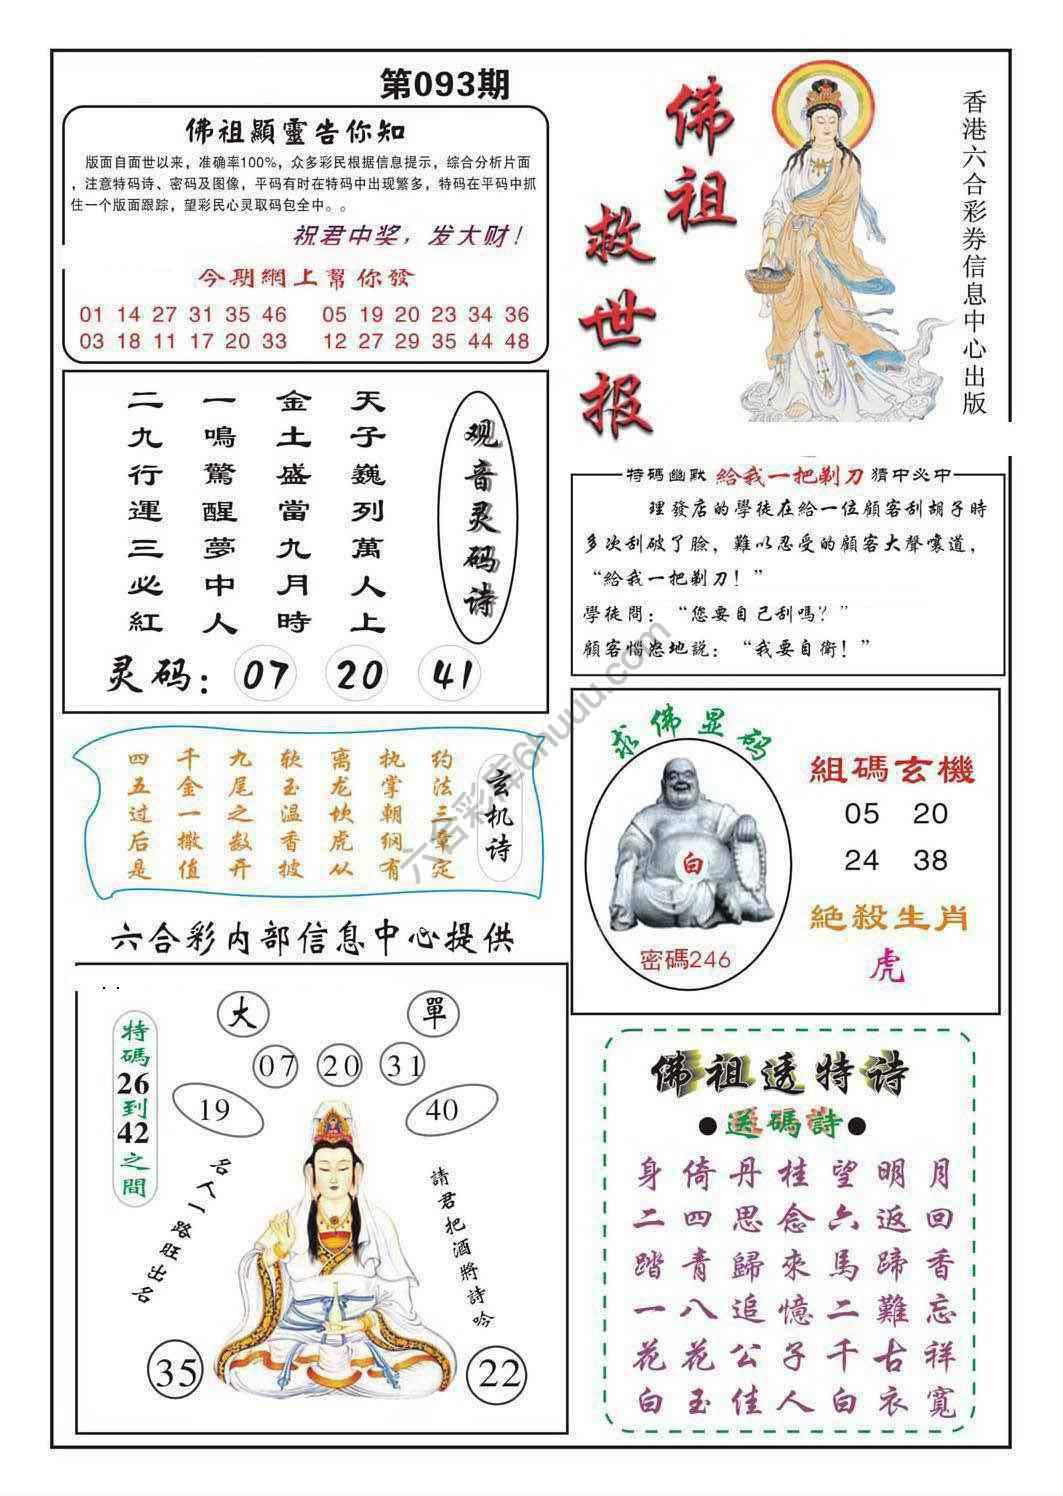 第093期
佛祖顯靈告你知
版面自面世以来，准确率100%，众多彩民根据信息提示，综合分析片面
，注意特码诗、密码及图像，平码有时在特码中出现繁多，特码在平码中抓
住一个版面跟踪，望彩民心灵取码包全中。。
祝君中奖，发大财！
今期網上幫你發
01 14 27 31 35 46 05 19 20 23 34 36
03 18 11 17 20 33 12 27 29 35 44 48
佛祖
救世报
香港六合彩券信息中心出版
观音灵码诗
天子巍列萬人上
金土盛當九月時
一鳴驚醒夢中人
二九行運三必紅
灵码：07 20 41
特碼幽默 給我一把剃刀 猜中必中
理發店的學徒在給一位顧客刮胡子時
多次刮破了臉，難以忍受的顧客大聲嚷道，
“給我一把剃刀！”
學徒問：“您要自己刮嗎？”
顧客惱怒地説：“我要自衛！”
玄机诗
约法三章定
执掌朝纲有
离龙坎虎从
软玉温香披
九尾之数开
千金一撒值
四五过后是
六合彩内部信息中心提供
求佛显码
白
密碼246
組碼玄機
05 20
24 38
絶殺生肖
虎
大 單
07 20 31
19 40
特碼26到42之間
名人一路旺出名
請君把酒將詩吟
35 22
佛祖透特诗
●送碼詩●
身倚丹桂望明月
二四思念六返回
踏青歸來馬蹄香
一八追憶二難忘
花花公子千古祥
白玉佳人白衣寬
六合彩库6huuu.com